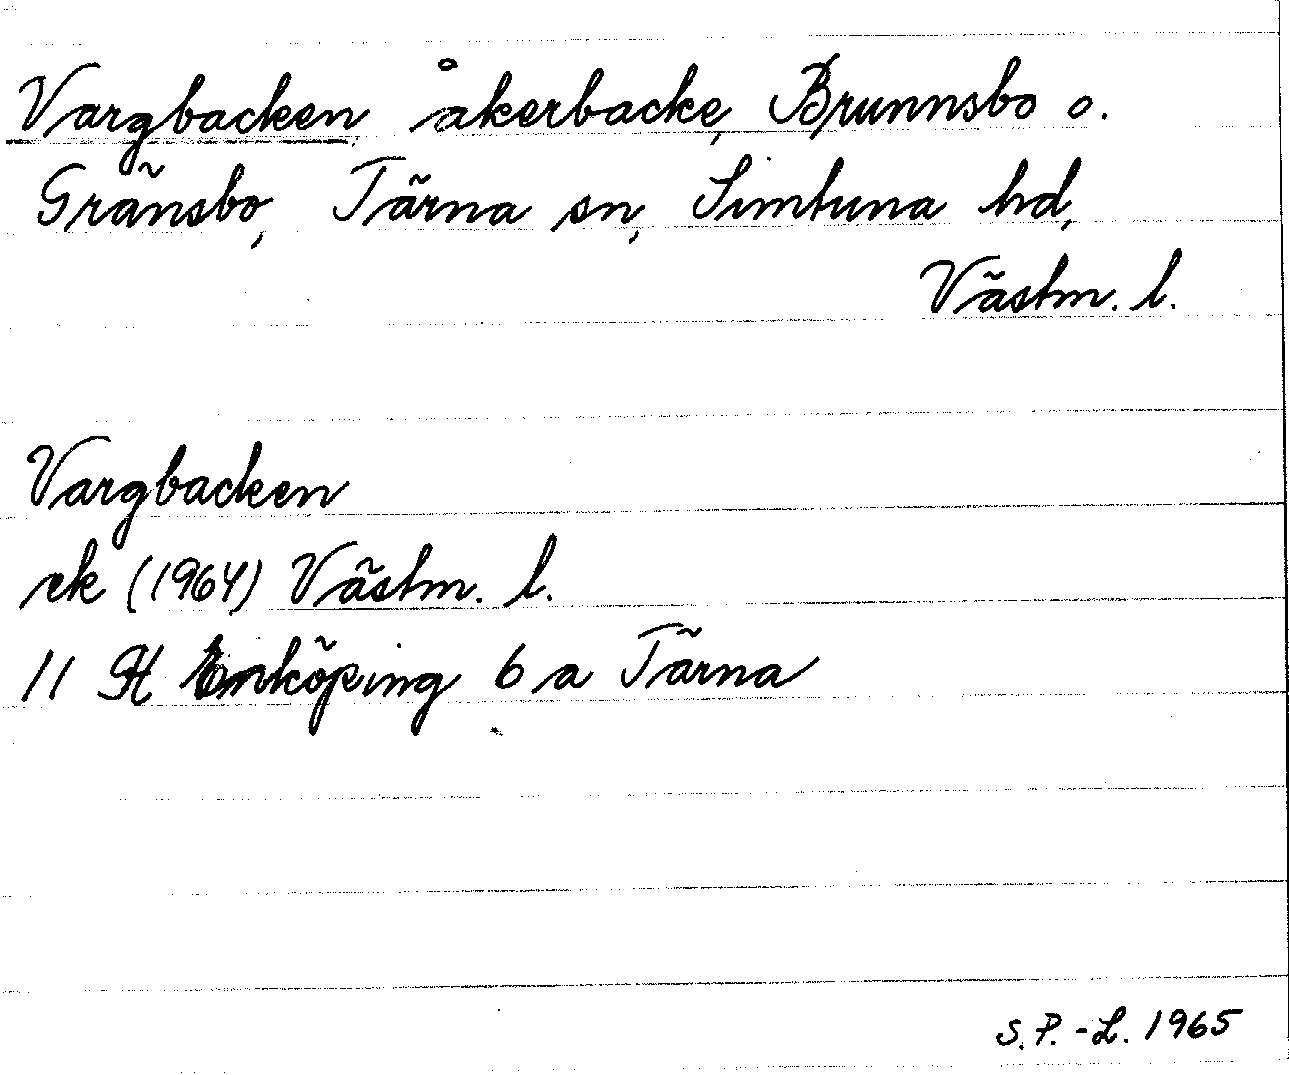 Vargbacken, åkerbacke, Brunnsbo o.
Gränsbo, Tärna sn, Simtuna hd,
Västm. l.
Vargbacken
ek (1964) Västm. l.
11 H Enköping 6 a Tärna
S.P.-L. 1965